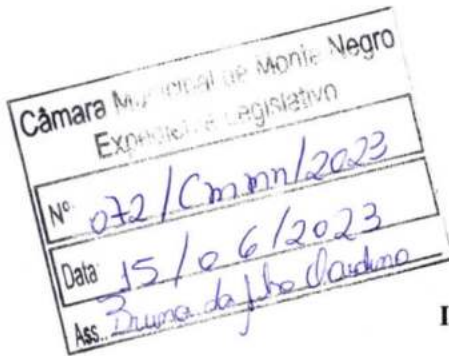 Câmara Municipal de Monte Negro
Expediente Legislativo
Nº 072/Cmmn/2023
Data: 15/06/2023
Ass.: Bruna da
I